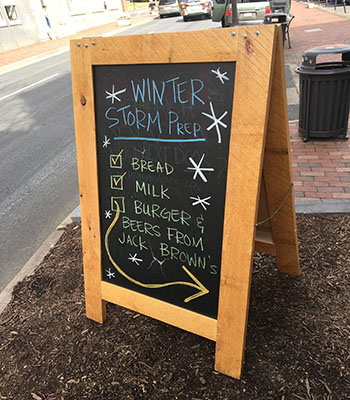 WINTER
STORM PREP
BREAD
MILK
BURGER &
BEERS FROM
JACK BROWN'S